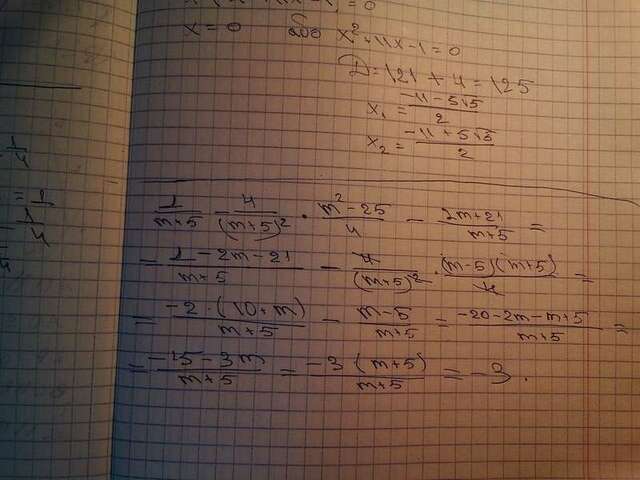 x = 0 або x² + 11x - 1 = 0
D = 121 + 4 = 125
x₁ = (-11 - 5√5)/2
x₂ = (-11 + 5√5)/2
1/(m+5) - 4/(m+5)² · (m² - 25)/4 - (2m+21)/(m+5) =
= (1 - 2m - 21)/(m+5) - 4/(m+5)² · (m-5)(m+5)/4 =
= (-2 · (10+m))/(m+5) - (m-5)/(m+5) = (-20-2m-m+5)/(m+5) =
= (-15-3m)/(m+5) = (-3 (m+5))/(m+5) = -3.